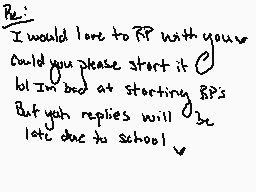 Re:
I would love to RP with you
Could you please start it
lol Im bad at starting RP's
But yah replies will be
late due to school